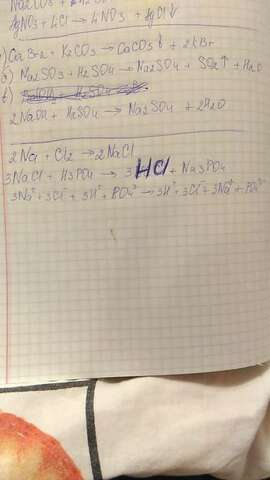 Na2CO3 +
AgNO3 + HCl → HNO3 + AgCl↓
CaBr2 + K2CO3 → CaCO3↓ + 2KBr
Na2SO3 + H2SO4 → Na2SO4 + SO2↑ + H2O
2NaOH + H2SO4 → Na2SO4 + 2H2O
2Na + Cl2 → 2NaCl
3NaCl + H3PO4 → 3HCl + Na3PO4
3Na⁺ + 3Cl⁻ + 3H⁺ + PO4³⁻ → 3H⁺ + 3Cl⁻ + 3Na⁺ + PO4³⁻